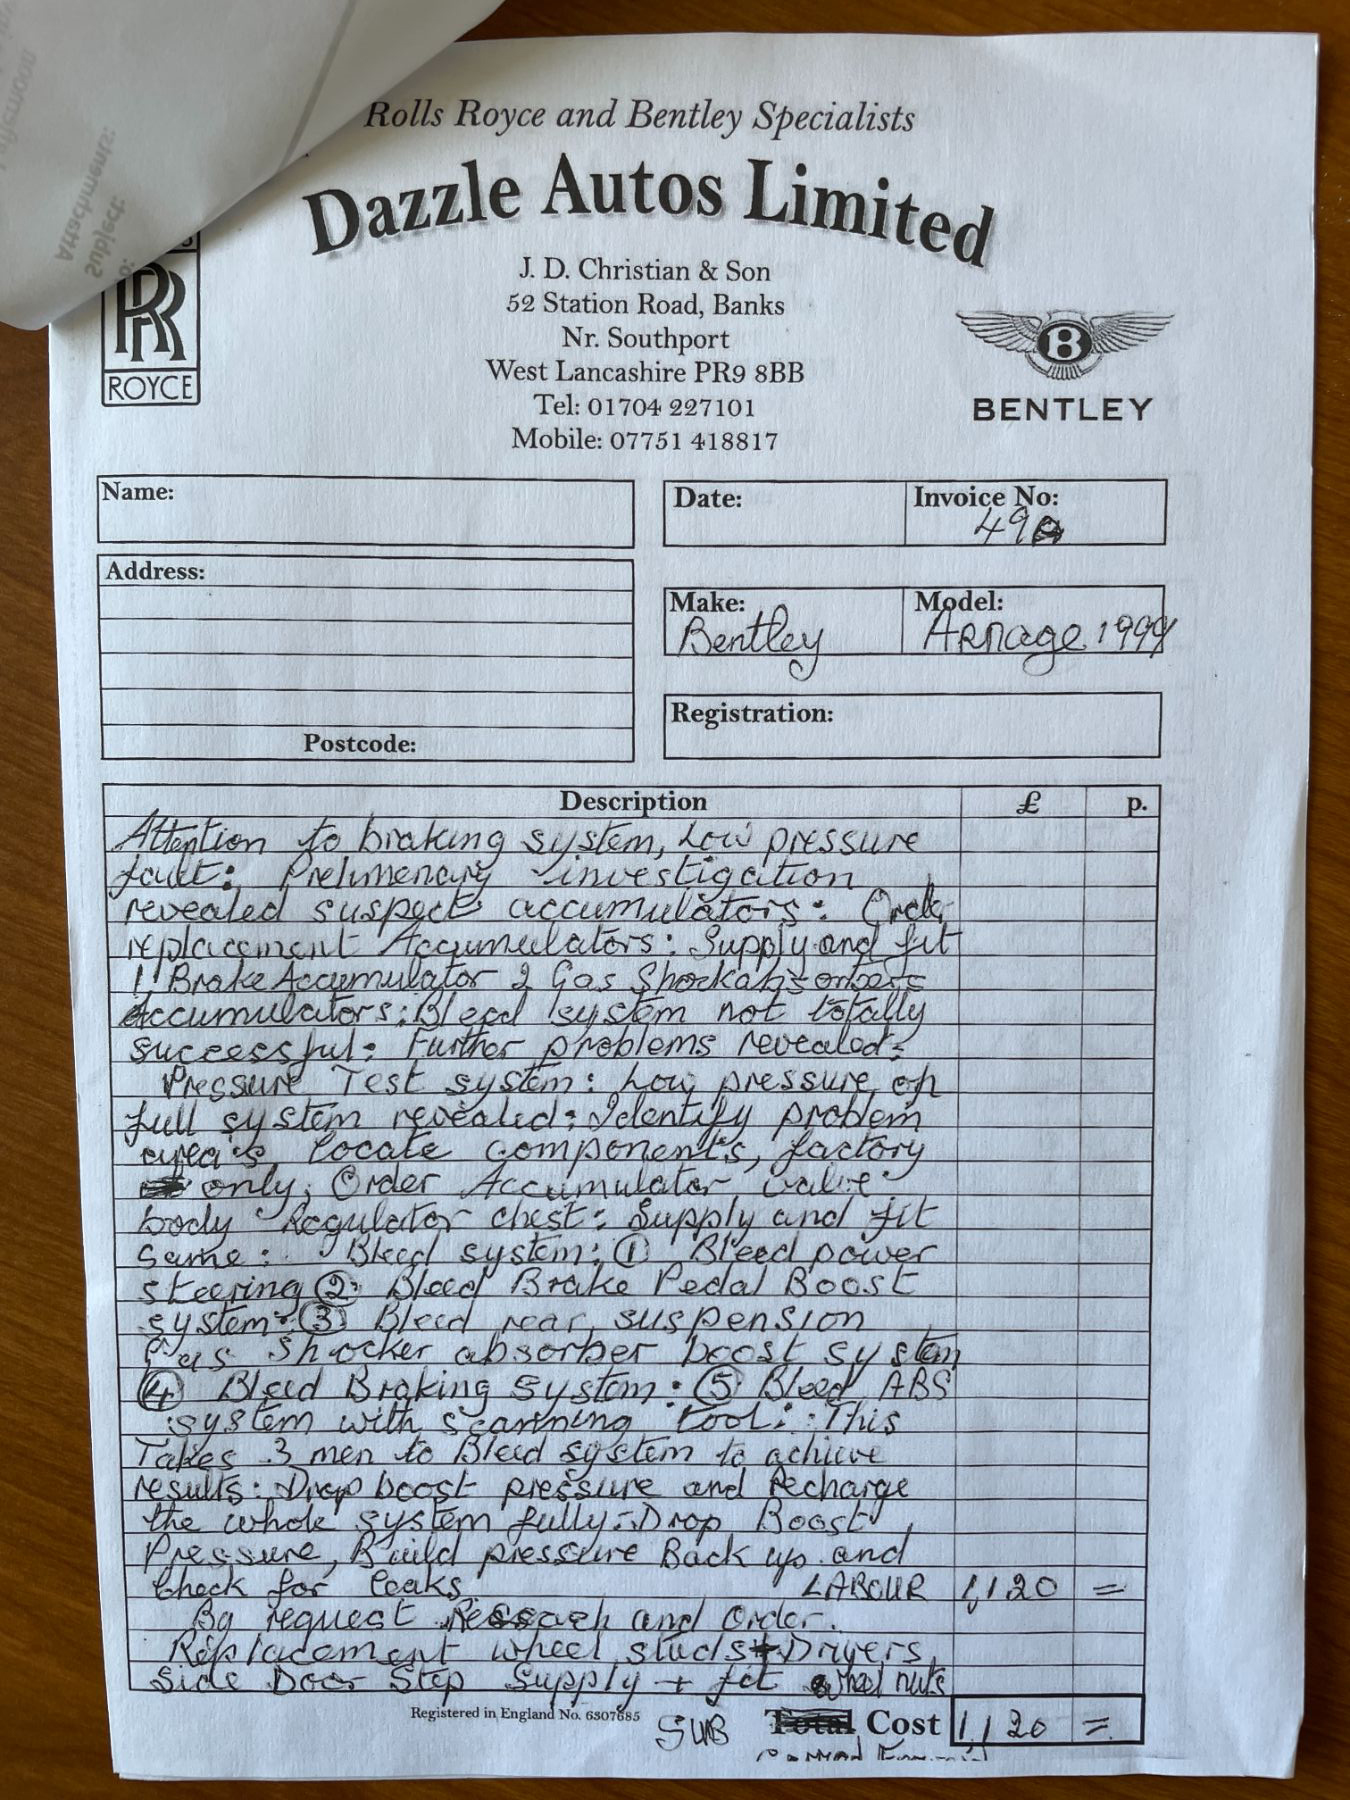 Attachments:
Subject:
Rolls Royce and Bentley Specialists
Dazzle Autos Limited
J. D. Christian & Son
52 Station Road, Banks
Nr. Southport
West Lancashire PR9 8BB
Tel: 01704 227101
Mobile: 07751 418817
RR
ROYCE
B
BENTLEY
Name:
Date:
Invoice No:
49
Address:
Make:
Bentley
Model:
Arnage 1999
Registration:
Postcode:
Description £ p.
Attention to braking system, Low pressure
fault: Prelimenary investigation
revealed suspect accumulators: Order
replacement Accumulators: Supply and fit
1 Brake Accumulator 2 Gas Shockabsorbers
Accumulators: Bleed system not totally
successful: Further problems revealed:
Pressure Test system: Low pressure on
full system revealed: Identify problem
area's, locate component's, factory
only; Order Accumulator valve
body Regulator chest: Supply and fit
same: Bleed system: ① Bleed power
steering ② Bleed Brake Pedal Boost
system: ③ Bleed rear suspension
Gas Shocker absorber boost system
④ Bleed Braking System: ⑤ Bleed ABS
system with scanning tool: This
Takes 3 men to Bleed system to achieve
results: Drop boost pressure and Recharge
the whole system fully: Drop Boost
Pressure, Build pressure Back up and
Check for leaks LABOUR 1,120 =
By request Reseach and Order.
Replacement wheel studs + Drivers
Side Door Step Supply + fit wheel nuts
Registered in England No. 6307685
SUB Total Cost 1,120 =